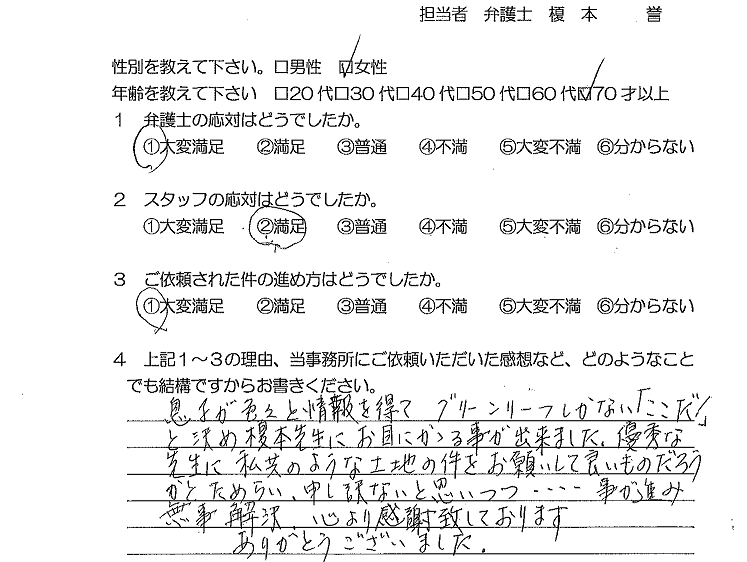 担当者 弁護士 榎 本 誉
性別を教えて下さい。□男性 □女性
年齢を教えて下さい □20代□30代□40代□50代□60代□70才以上
1 弁護士の応対はどうでしたか。
①大変満足 ②満足 ③普通 ④不満 ⑤大変不満 ⑥分からない
2 スタッフの応対はどうでしたか。
①大変満足 ②満足 ③普通 ④不満 ⑤大変不満 ⑥分からない
3 ご依頼された件の進め方はどうでしたか。
①大変満足 ②満足 ③普通 ④不満 ⑤大変不満 ⑥分からない
4 上記1~3の理由、当事務所にご依頼いただいた感想など、どのようなこと
でも結構ですからお書きください。
息子が色々と情報を得て グリーンリーフしかない「ここだ!」
と決め榎本先生にお目にかゝる事が出来ました。優秀な
先生に私共のような土地の件をお願いして良いものだろう
かとためらい、申し訳ないと思いつつ ‥‥ 事が進み
無事解決、心より感謝致しております
ありがとうございました。